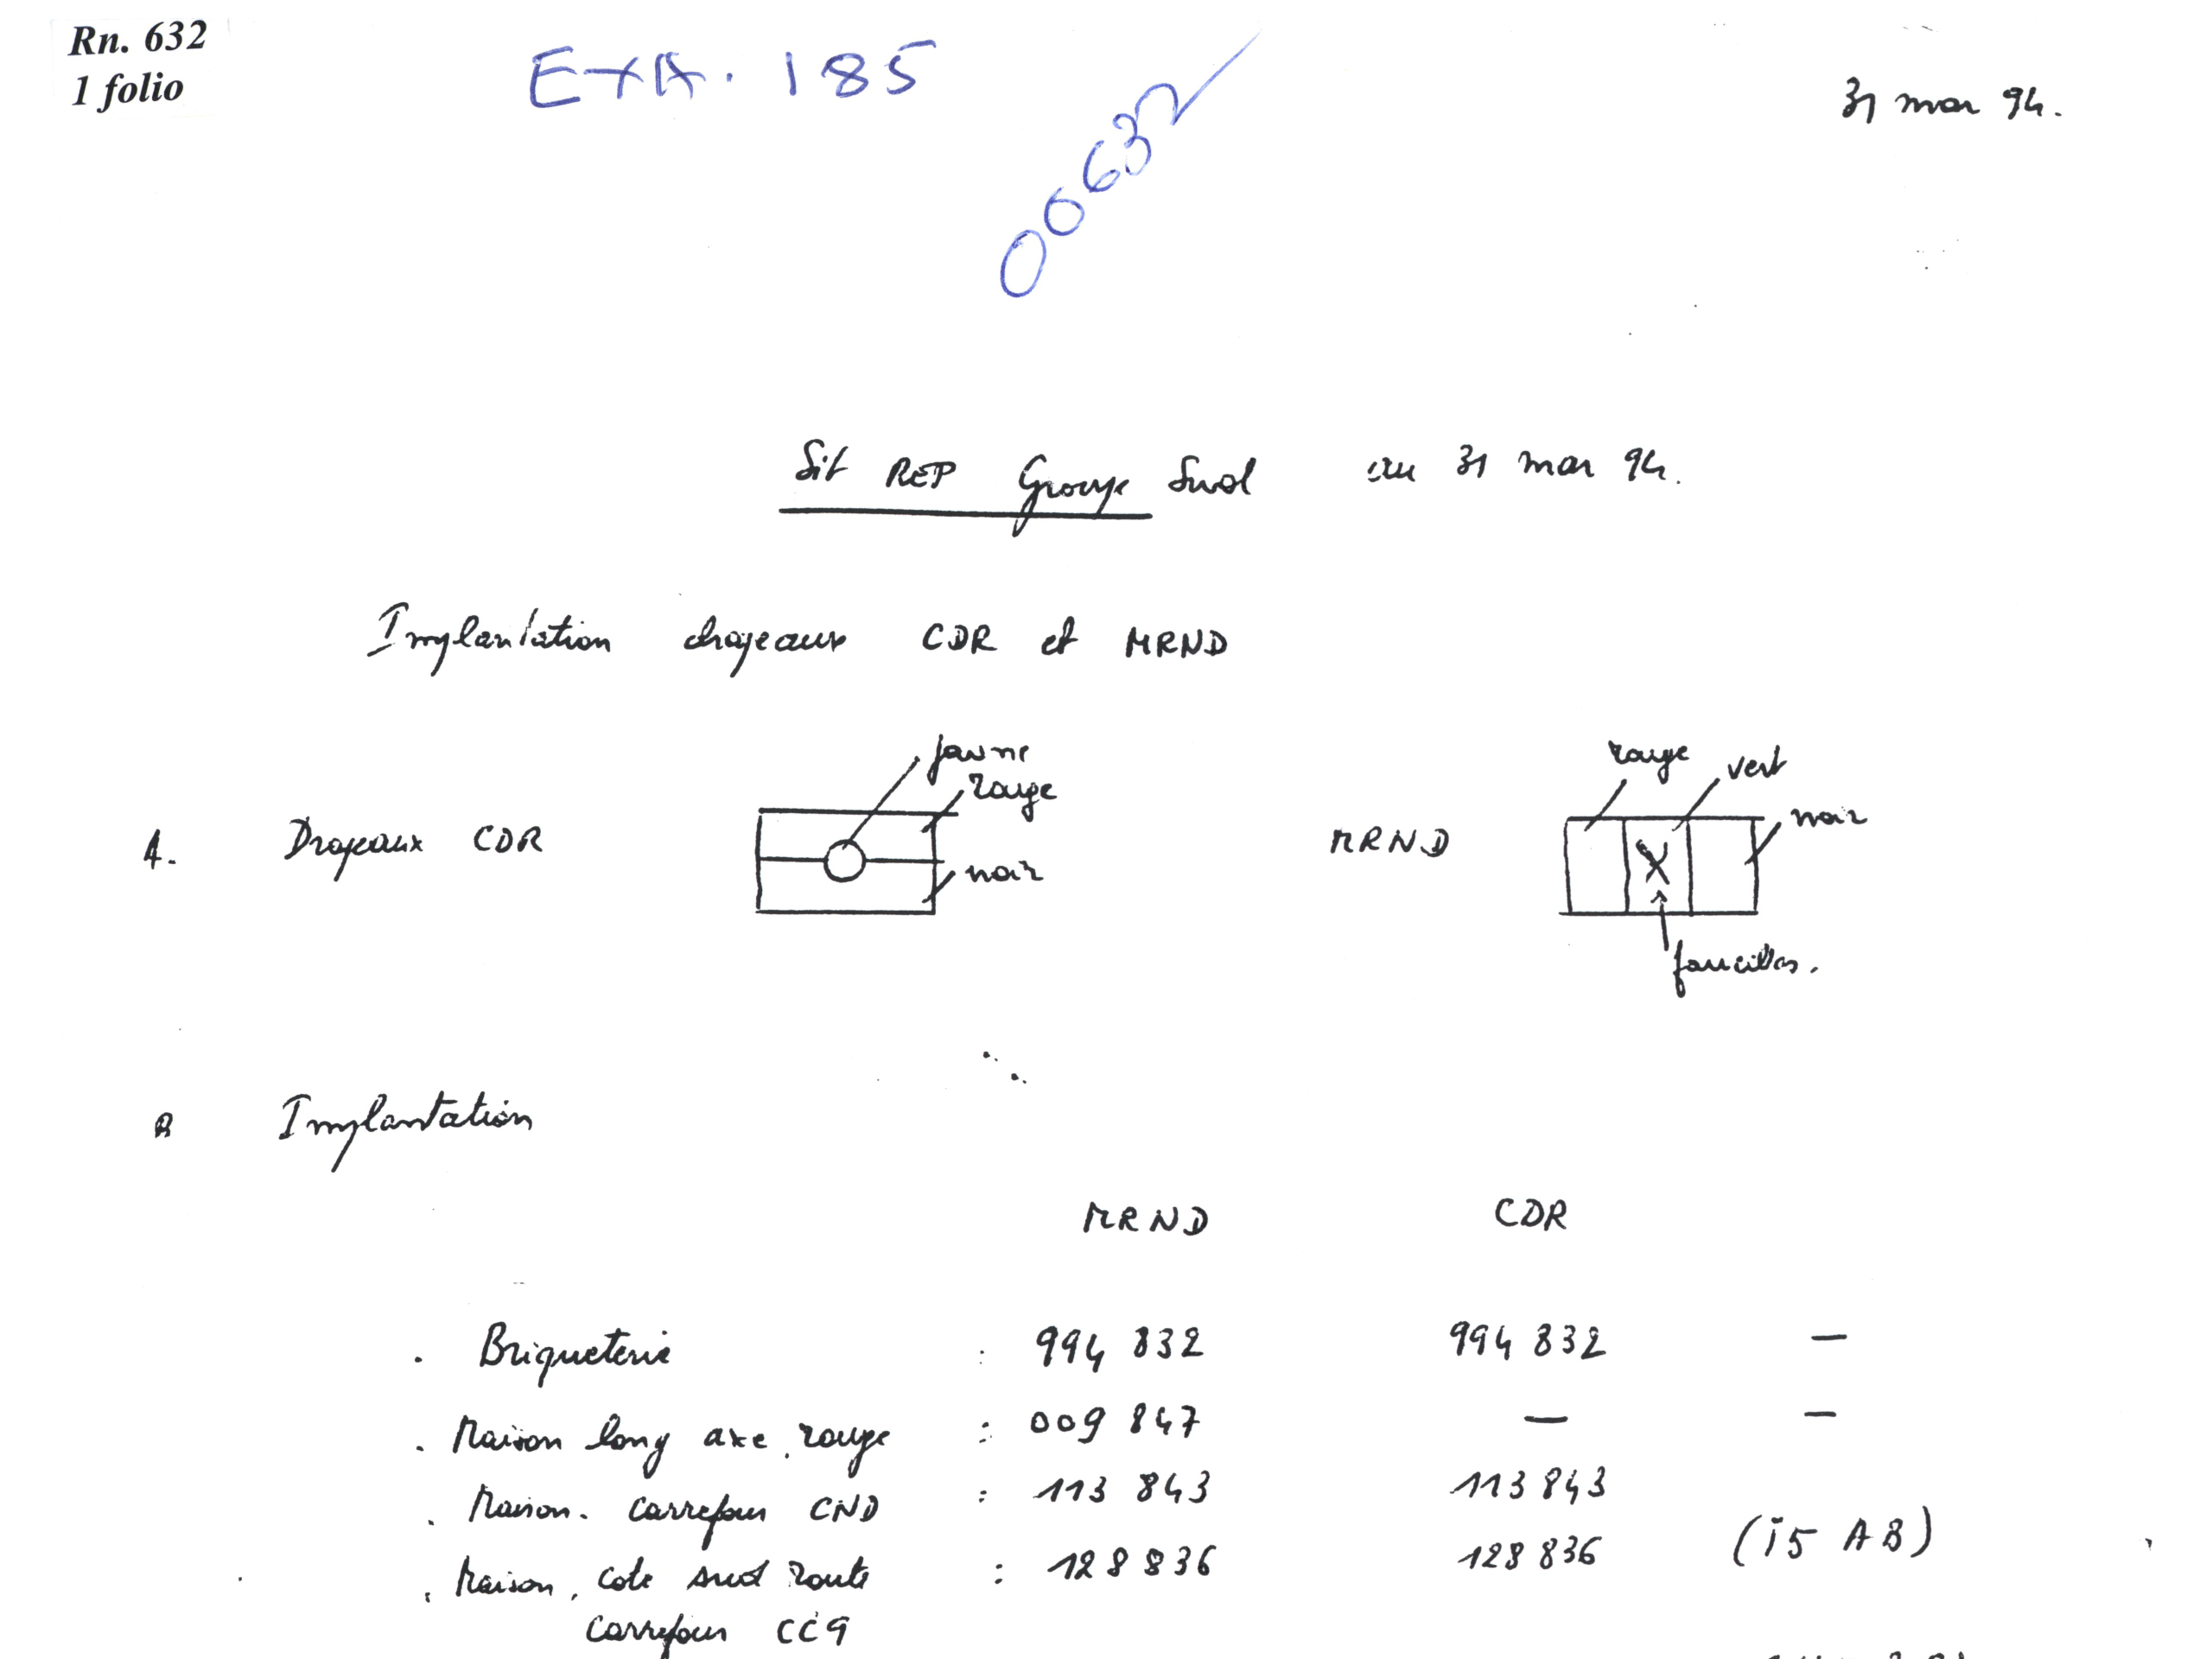 Rn. 632
1 folio
EXH. 185
00632
31 mar 94.
Sit REP Groupe Sud au 31 mar 94.
Implantation drapeaux CDR et MRND
jaune
rouge
noir
rouge
vert
noir
A. Drapeaux CDR MRND
faucilles.
B Implantation
MRND CDR
. Briqueterie : 994 832 994 832 —
. Maison long axe rouge : 009 847 — —
. Maison. Carrefour CND : 113 843 113 843
. Maison, cote sud route : 128 836 128 836 (15 AB)
Carrefour CC9